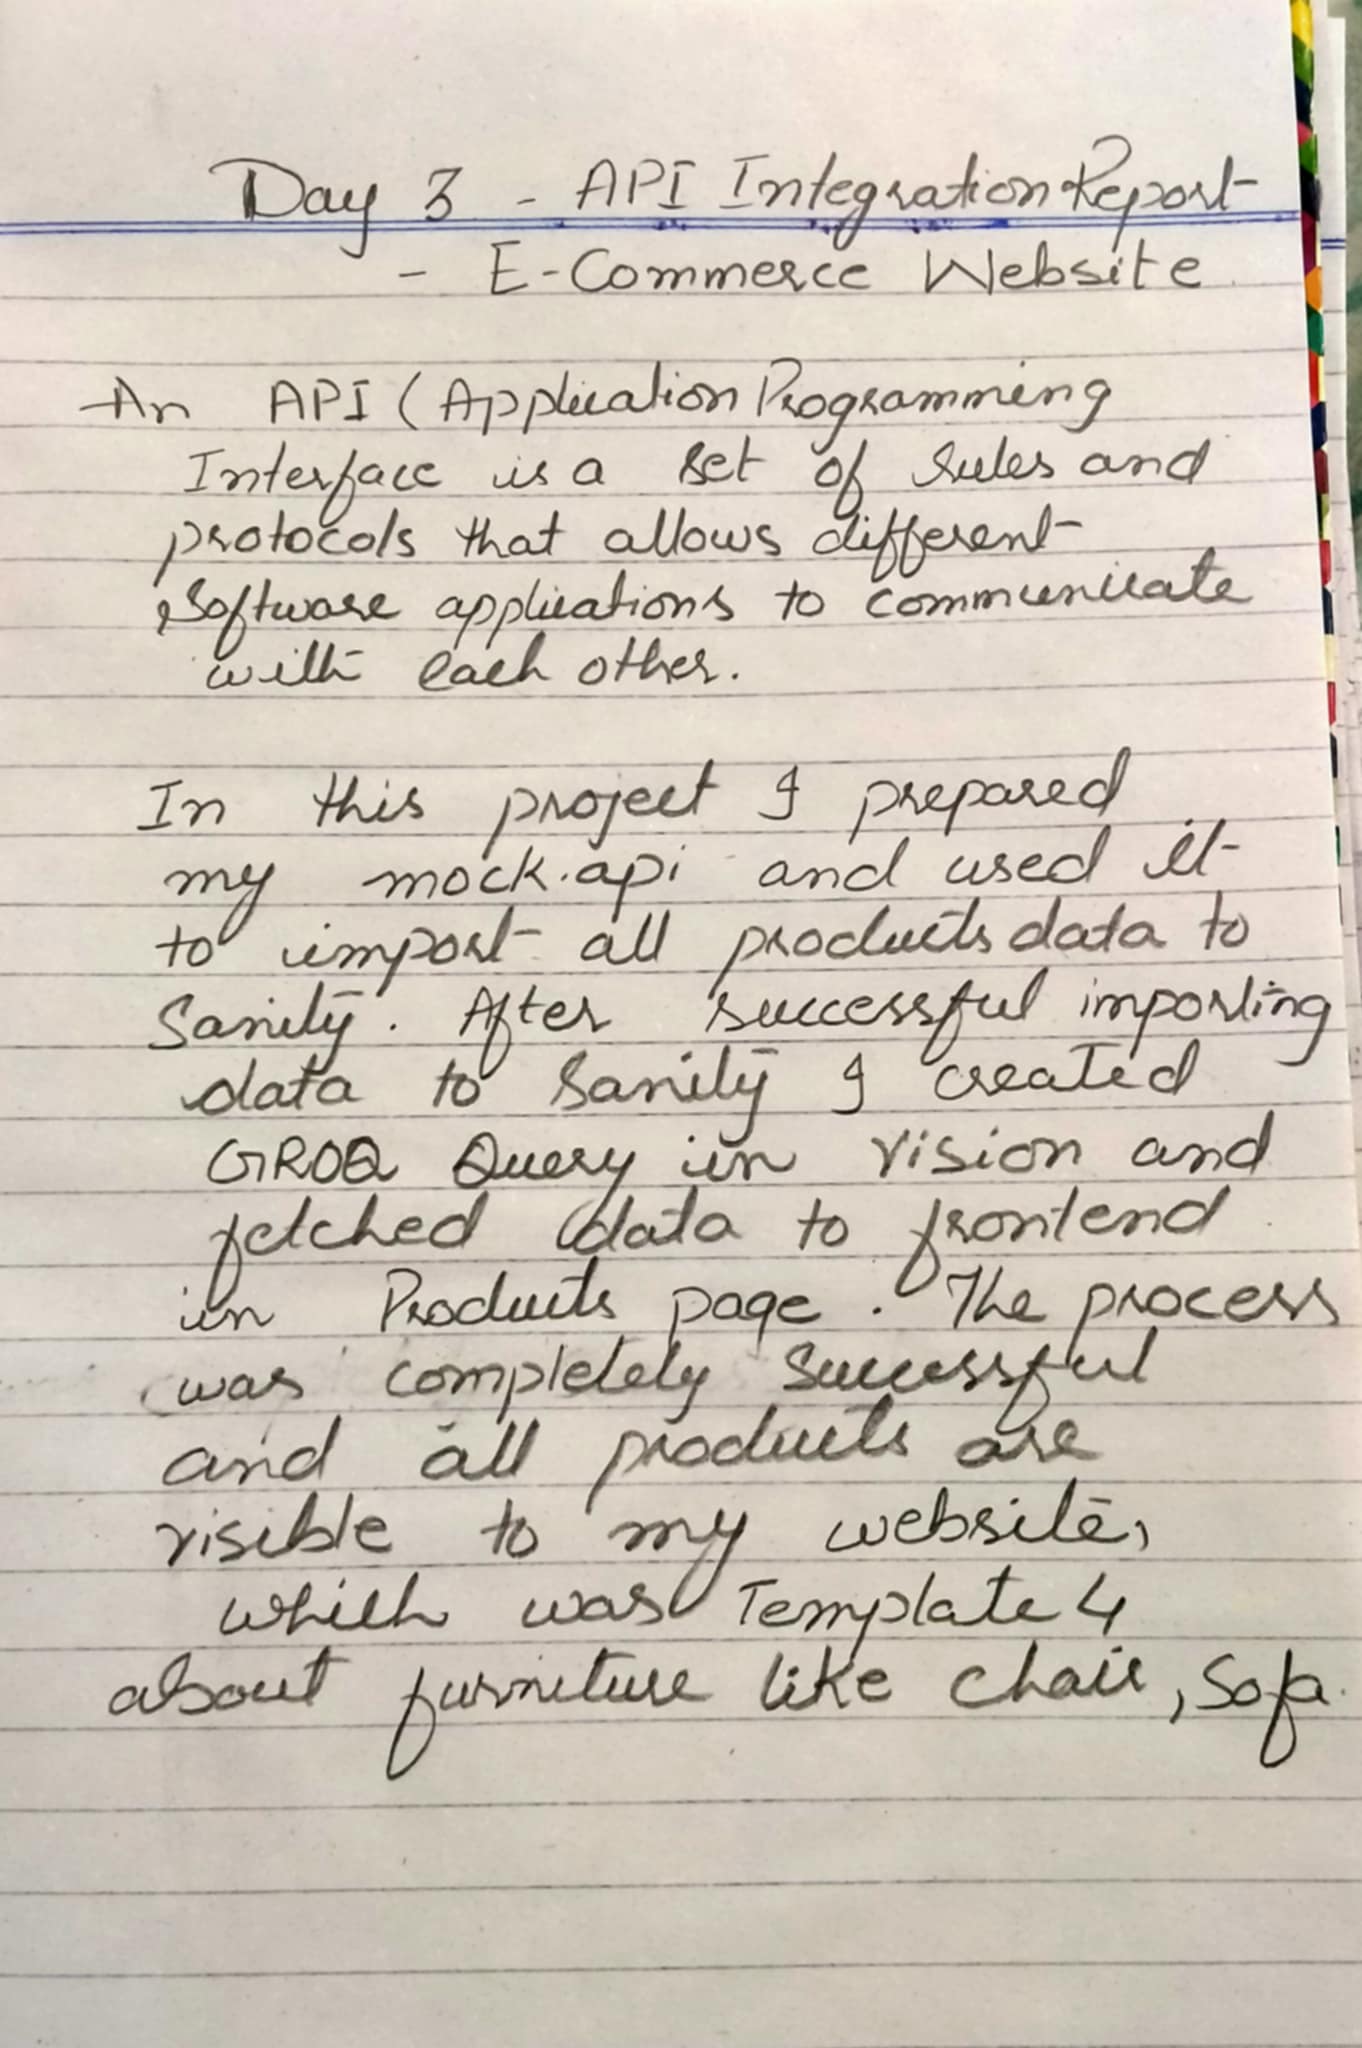 Day 3 - API Integration Report
- E-Commerce Website
An API (Application Programming
Interface is a set of rules and
protocols that allows different
software applications to communicate
with each other.
In this project I prepared
my mock.api and used it
to import all products data to
Sanity. After successful importing
data to Sanity I created
GROQ Query in vision and
fetched data to frontend
in Products page. The process
was completely successful
and all products are
visible to my website,
which was Template 4
about furniture like chair, Sofa.